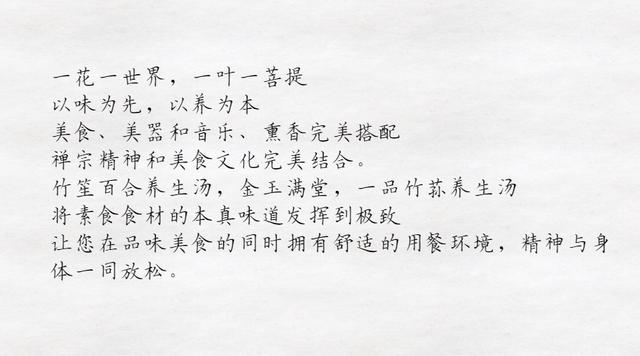 一花一世界，一叶一菩提
以味为先，以养为本
美食、美器和音乐、熏香完美搭配
禅宗精神和美食文化完美结合。
竹笙百合养生汤，金玉满堂，一品竹荪养生汤
将素食食材的本真味道发挥到极致
让您在品味美食的同时拥有舒适的用餐环境，精神与身
体一同放松。